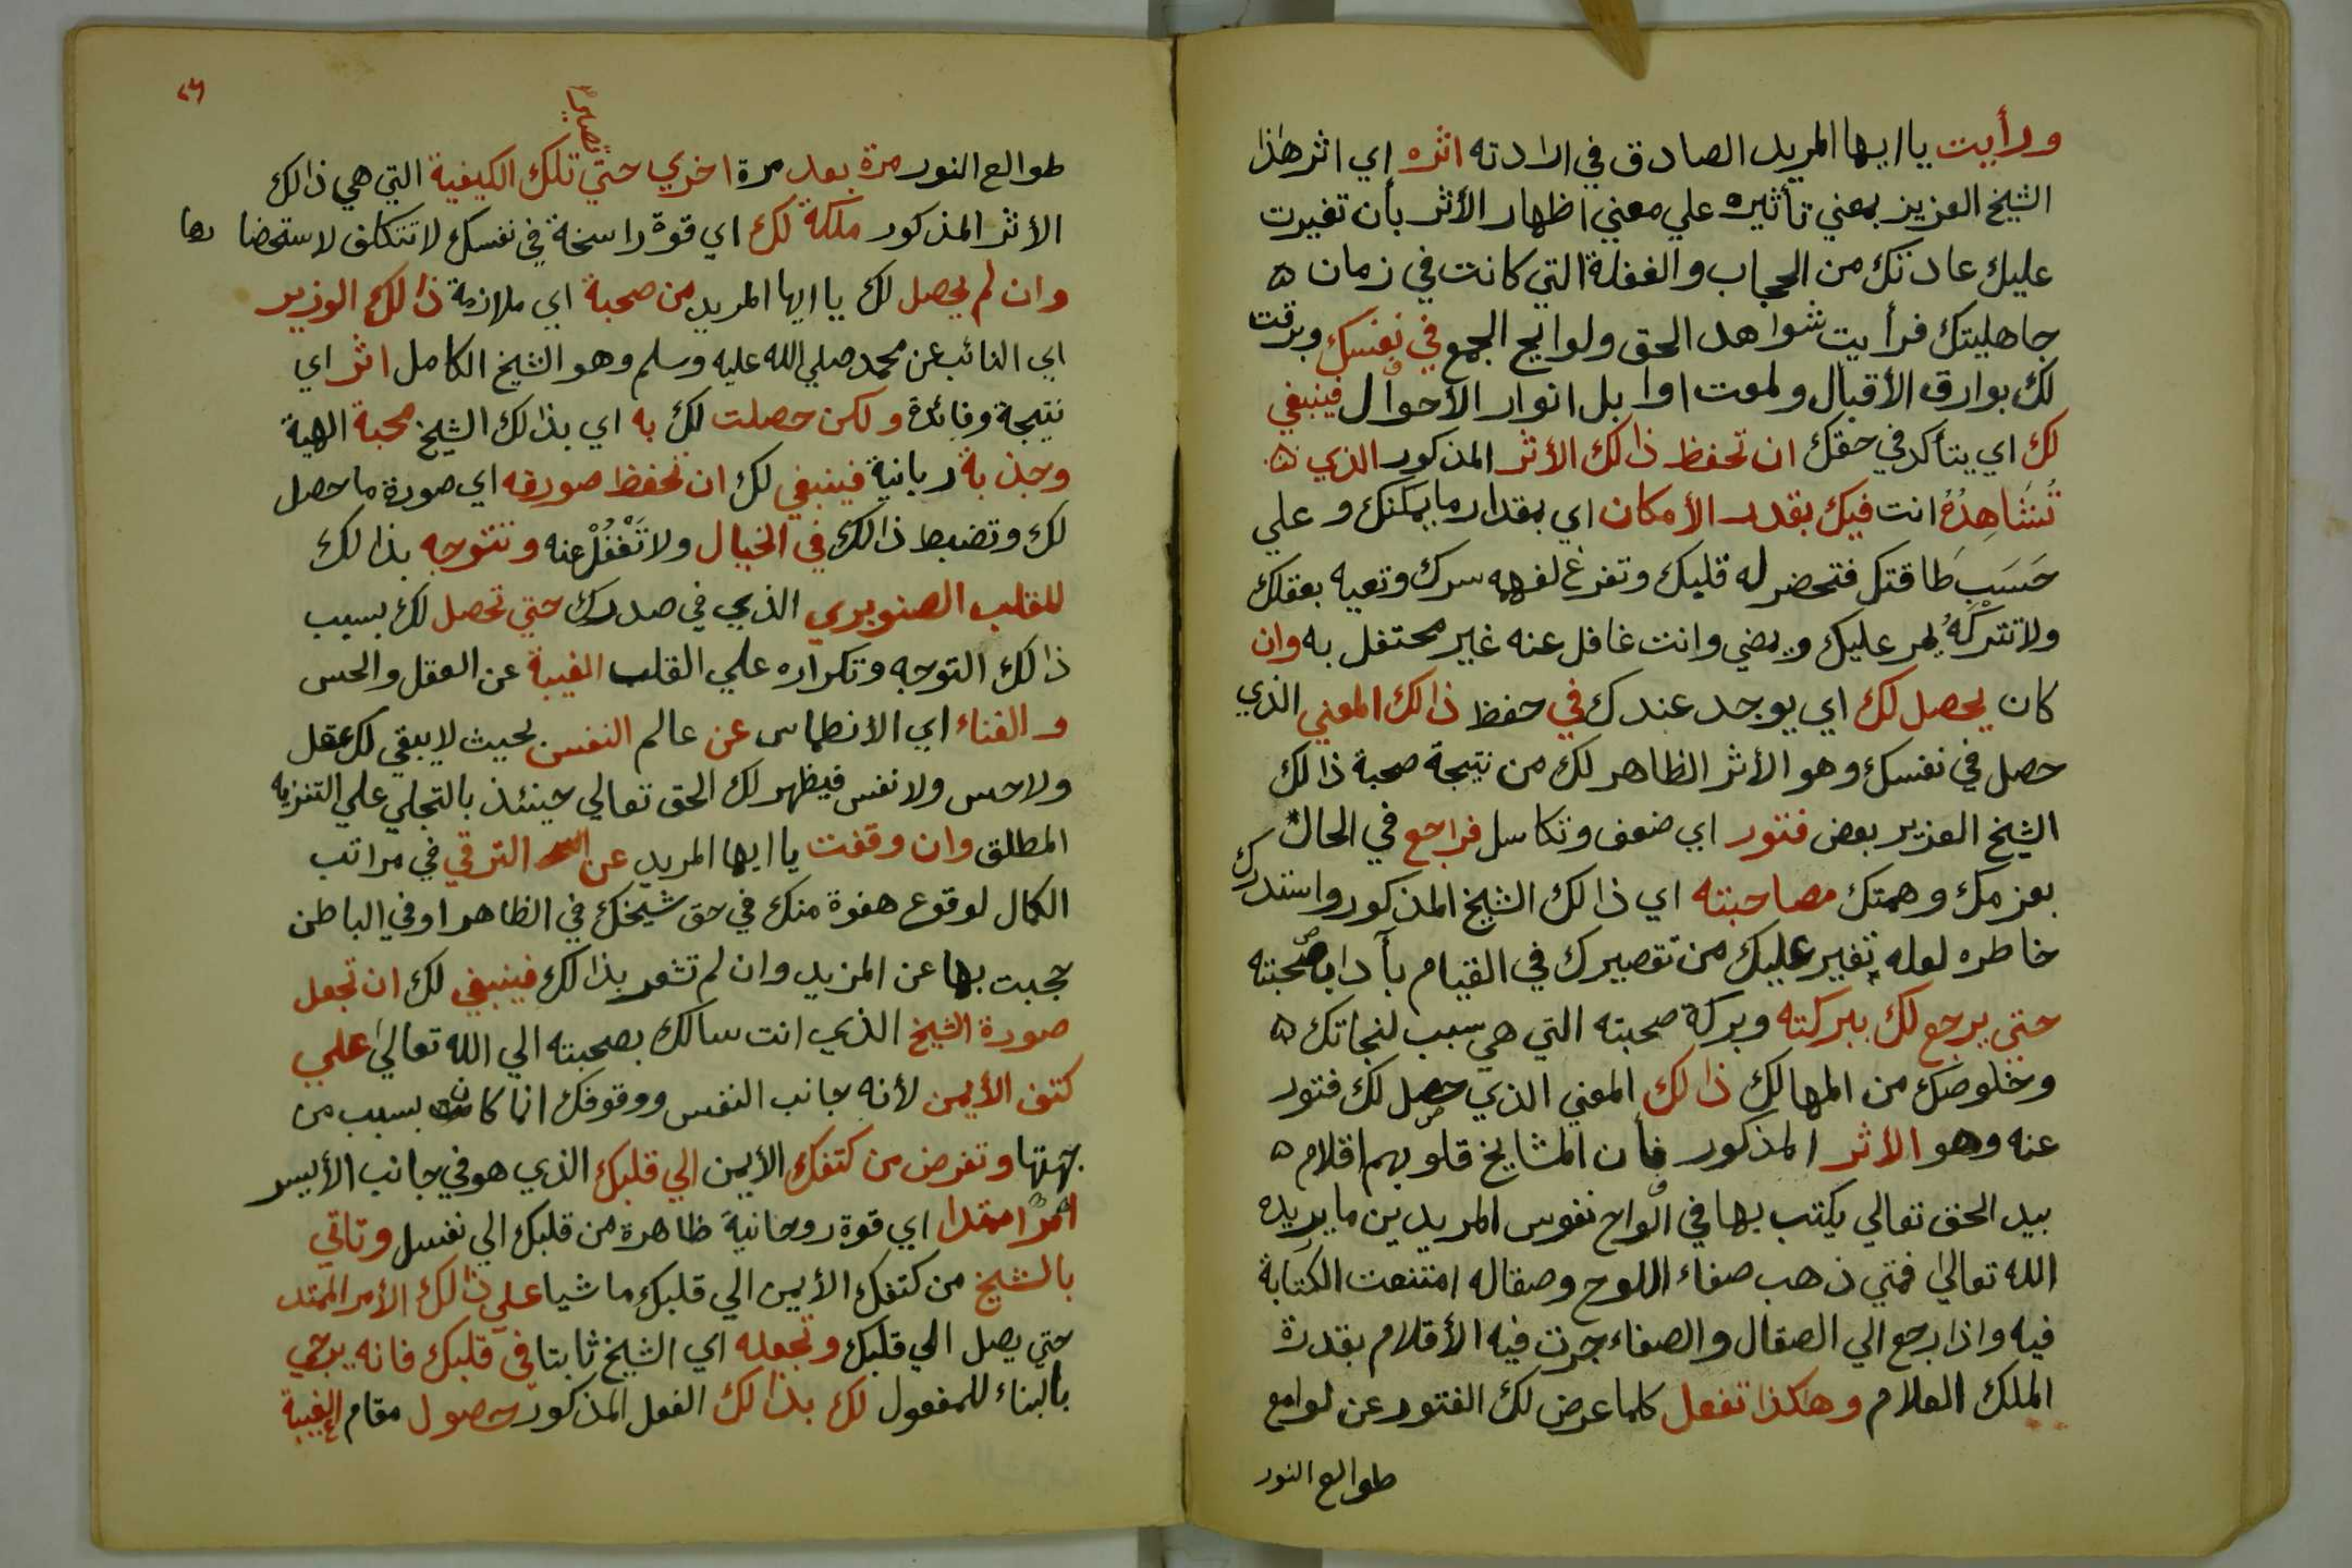 ورأيت يا ايها المريد الصادق في ارادته اثره اي اثر هذا
الشيخ العزيز بمعني تأثيره علي معني اظهار الأثر بأن تغيرت
عليك عادتك من الحجاب والغفلة التي كانت في زمان
جاهليتك فرأيت شواهد الحق ولوايح الجمع في نفسك وبرقت
لك بوارق الأقبال ولمعت اوابل انوار الأحوال فينبغي
لك اي يتأكد في حقك ان تحفظ ذالك الأثر المذكور الذي
تُشَاهِدُهُ انت فيك بقدر الأمكان اي بمقدار ما يمكنك وعلي
حَسَبِ طاقتك فتحضر له قلبك وتفرغ لفهمه سرك وتعيه بعقلك
ولا تتركْهُ يمر عليك ويمضي وانت غافل عنه غير محتفل به وان
كان يحصل لك اي يوجد عندك في حفظ ذالك المعني الذي
حصل في نفسك وهو الأثر الظاهر لك من نتيجة صحبة ذالك
الشيخ العزيز بعض فتور اي ضعف وتكاسل فراجع في الحال
بعزمك وهمتك مصاحبته اي ذالك الشيخ المذكور واستدرك
خاطره لعله تغير عليك من تقصيرك في القيام بآداب صحبته
حتي يرجع لك ببركته وبركة صحبته التي هي سبب لنجاتك
وخلوصك من المهالك ذالك المعني الذي حصل لك فتور
عنه وهو الأثر المذكور فأن المشايخ قلوبهم اقلام
بيد الحق تعالي يكتب بها في الواح نفوس المريدين ما يريده
الله تعالي فمتي ذهب صفاء اللوح وصقاله امتنعت الكتابة
فيه واذا رجع الي الصقال والصفاء جرت فيه الأقلام بقدرة
الملك العلام وهكذا تفعل كلما عرض لك الفتور عن لوامع
طوالع النور
٢٦
تصير
طوالع النور مرة بعد مرة اخري حتي تلك الكيفية التي هي ذالك
الأثر المذكور ملكة لك اي قوة راسخة في نفسك لا تتكلف لاستحضارها
وان لم يحصل لك يا ايها المريد من صحبة اي ملازمة ذالك الوزير
اي النائب عن محمد صلي الله عليه وسلم وهو الشيخ الكامل اثر اي
نتيجة وفائدة ولكن حصلت لك به اي بذالك الشيخ محبة الهية
وجذبة ربانية فينبغي لك ان تحفظ صورته اي صورة ما حصل
لك وتضبط ذالك في الخيال ولا تَغْفُلْ عنه وتتوجه بذالك
للقلب الصنوبري الذي في صدرك حتي تحصل لك بسبب
ذالك التوجه وتكراره علي القلب الغيبة عن العقل والحس
والفناء اي الأنطماس عن عالم النفس بحيث لا يبقي لك عقل
ولا حس ولا نفس فيظهر لك الحق تعالي حينئذ بالتجلي علي التنزيه
المطلق وان وقفت يا ايها المريد عن الترقي في مراتب
الكمال لوقوع هفوة منك في حق شيخك في الظاهر او في الباطن
حجبت بها عن المزيد وان لم تشعر بذالك فينبغي لك ان تجعل
صورة الشيخ الذي انت سالك بصحبته الي الله تعالي علي
كتف الأيمن لأنه جانب النفس ووقوفك انما كان بسبب من
جهتها وتفرض من كتفك الأيمن الي قلبك الذي هو في جانب الأيسر
امرًا ممتدا اي قوة روحانية ظاهرة من قلبك الي نفسك وتاتي
بالشيخ من كتفك الأيمن الي قلبك ماشيا علي ذالك الأمر الممتد
حتي يصل الي قلبك وتجعله اي الشيخ ثابتا في قلبك فانه يرجي
بالبناء للمفعول لك بذالك الفعل المذكور حصول مقام الغيبة